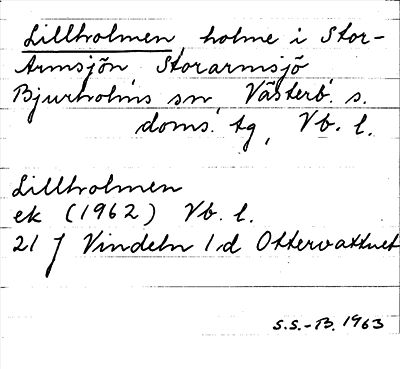 Lillholmen, holme i Stor-
Armsjön, Storarmsjö
Bjurholms sn, Västerb. s.
doms. tg, Vb. l.
Lillholmen
ek (1962) Vb. l.
21 J Vindeln 1 d Ottervattnet
S.S.-B. 1963